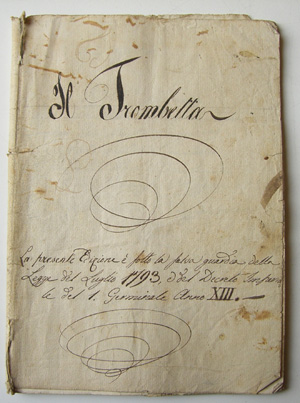 Il Trombetta
La presente Edizione è sotto la salva guardia della
Legge del Luglio 1793, e del Decreto Imperia
le del 1. Germinale Anno XIII.